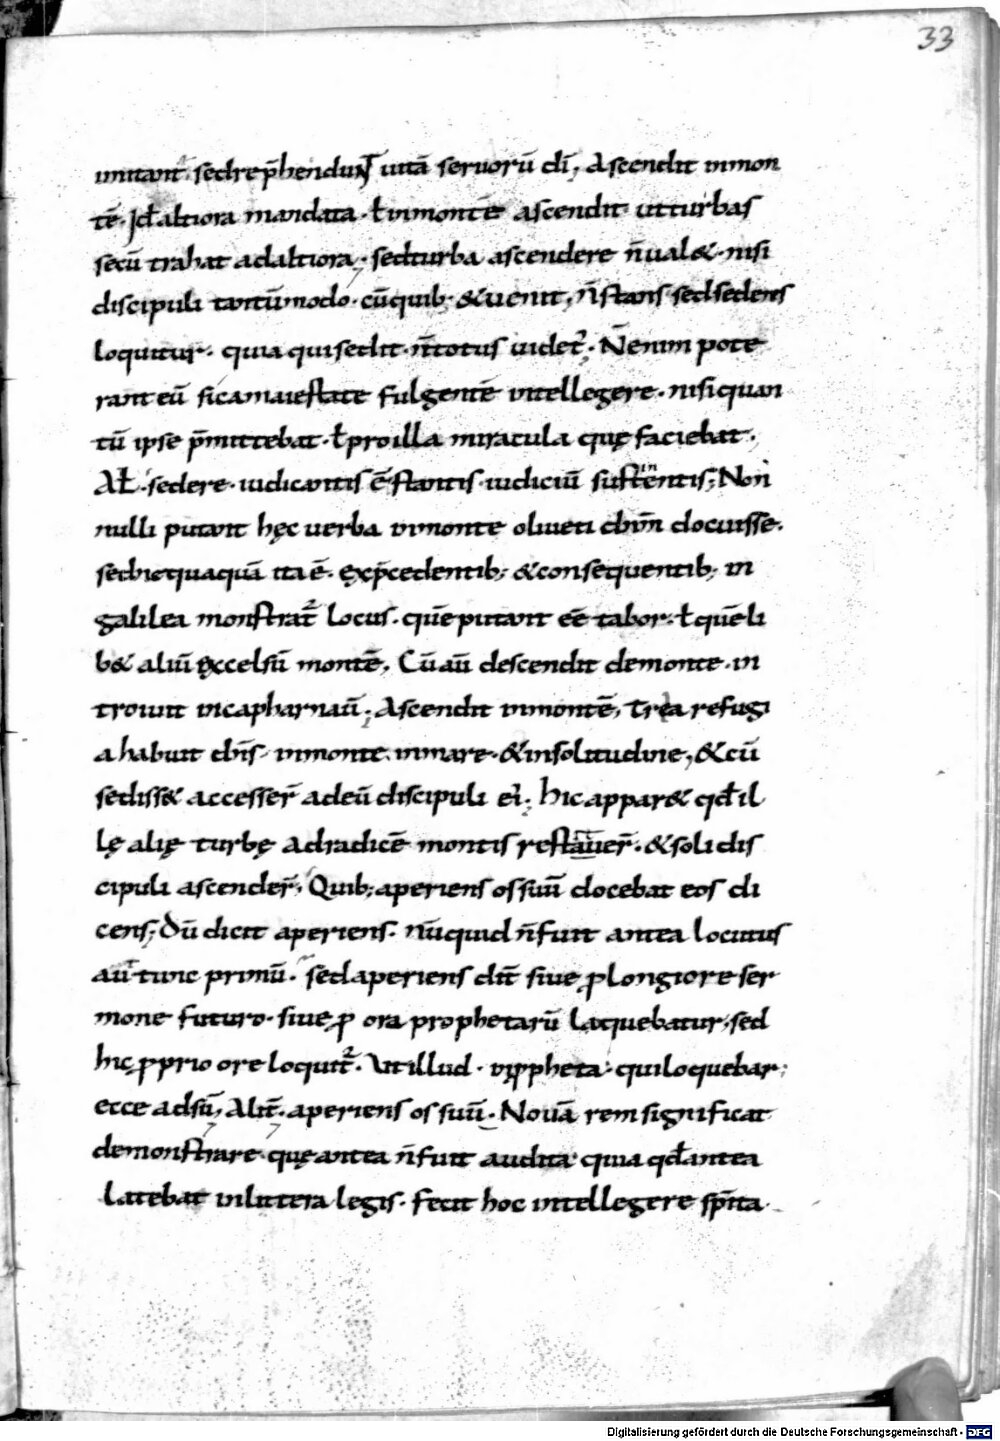 33
imitant. sedrep̄hendunt uitā seruorū dī; Ascendit inmon
tē. Id÷ altiora mandata. ł inmonte ascendit utturbas
secū trahat adaltiora; sedturba ascendere n̄ual&. nisi
discipuli tantūmodo. cūquib; &uenit. n̄stans sedsedens
loquitur. quia quisedit. n̄totus uidet᷑. Nenim pote
rant eū sicamaiestate fulgentē intellegere. nisiquan
tū ipse p̄mittebat. ł proilla miracula quę faciebat.
Ał. sedere. iudicantis ē. stantis. iudiciū sustinentis; Non
nulli putant hęc uerba inmonte oliueti dn̄m docuisse.
sed quaquā ita ē. exp̄cedentib; &consequentib; in
galilea monstrat᷑ locus. quē putant eē tabor. ł quēli
b& aliū excelsū montē. Cū aū descendit demonte. in
troiuit incapharnaū; Ascendit inmontē, Trea refugi
a habuit dn̄s. inmonte. inmare. &insolitudine, &cū
sediss& accesser̄ adeū discipuli ei; hic appar& qđ il
lę alię turbę adradicē montis restauer̄. &soli dis
cipuli ascender̄, Quib; aperiens os suū docebat eos di
cens; Dū dicit aperiens. nūquid n̄fuit antea locutus
aū tunc primū. sed aperiens dīt siue ꝓlongiore ser
mone futuro. siue ꝓ ora prophetarū laquebatur, sed
hic ꝓprio ore loquit᷑. Vt illud. pheta. quiloquebar;
ecce adsū; Alit̄. aperiens os suū. Nouā rem significat
demonstrare. quę antea n̄fuit audita. quia qđ antea
latebat inlittera legis. fecit hoc intellegere sp̄ita
Digitalisierung gefördert durch die Deutsche Forschungsgemeinschaft - DFG